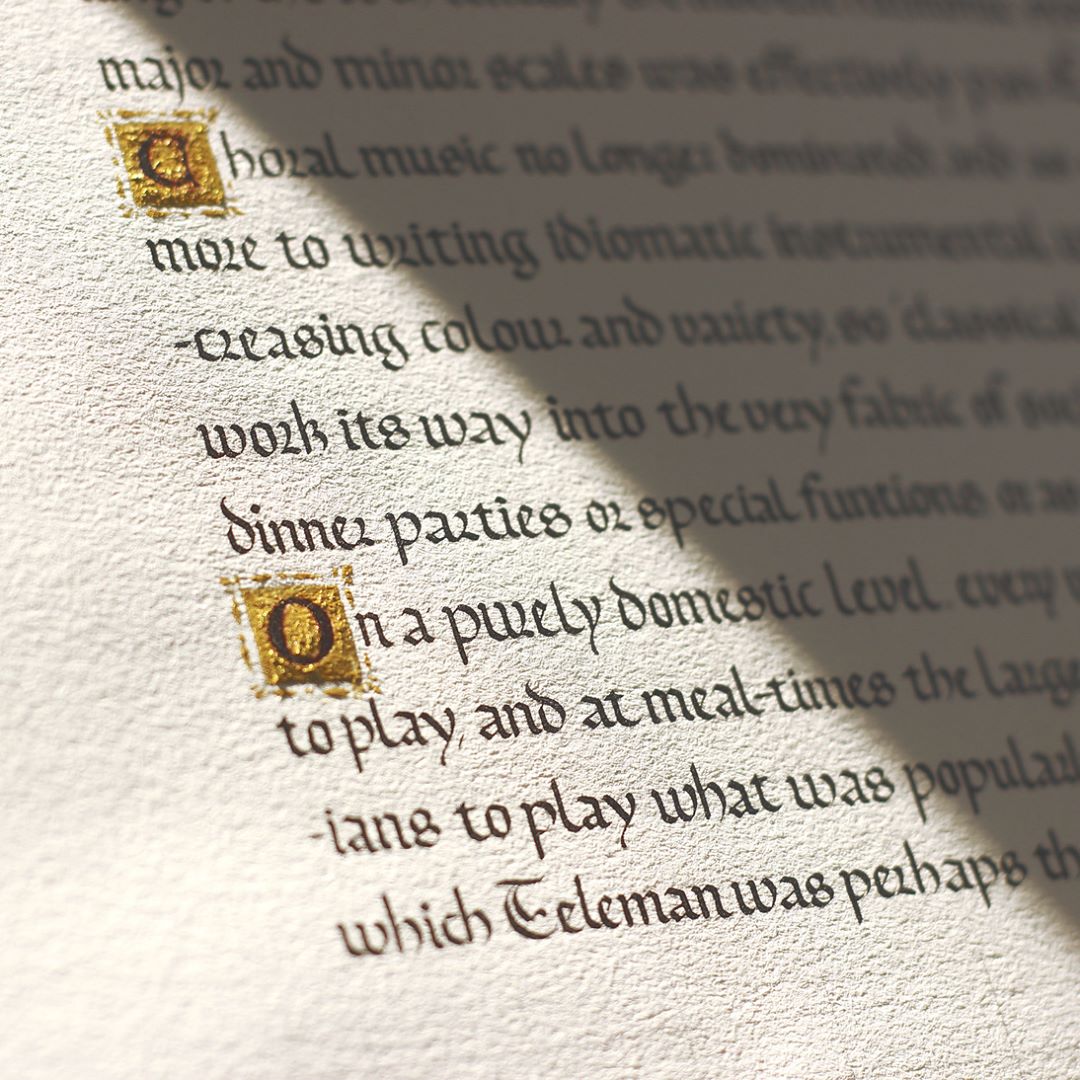 major and minor scales was effectively
Choral music no longer dominated, and as
more to writing idiomatic instrumental
-creasing colour and variety, so classical
work its way into the very fabric of
dinner parties or special funtions or as
On a purely domestic level, every
to play, and at meal-times the large
-ians to play what was popular
which Teleman was perhaps